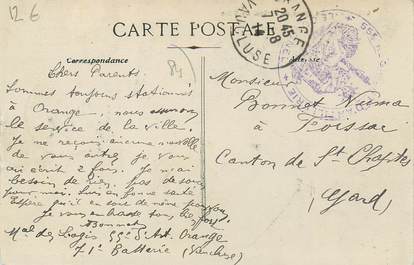 12 €
84
CARTE POSTALE
Correspondance
Adresse
ORANGE
20 45
7-8
VAUCLUSE
Chers Parents.
Sommes toujours stationnés
à Orange, nous assurons
le service de la ville.
Je ne reçois aucune nouvelle
de vous autres je vous
ai écrit 2 fois. Je n'ai
besoin de rien, pas de souci
pour moi. Suis en bonne santé
Espère qu'il en soit de même pour vous.
Je vous embrasse tous bien fort
Bonnet
Mal des Logis 55e d'Art. Orange
71e Batterie (Vaucluse)
Monsieur
Bonnet Numa
à Foissac
Canton de St Chaptes
(Gard)